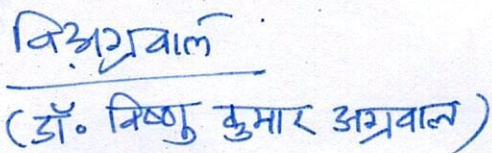 वि.अग्रवाल
(डॉ॰ विष्णु कुमार अग्रवाल)